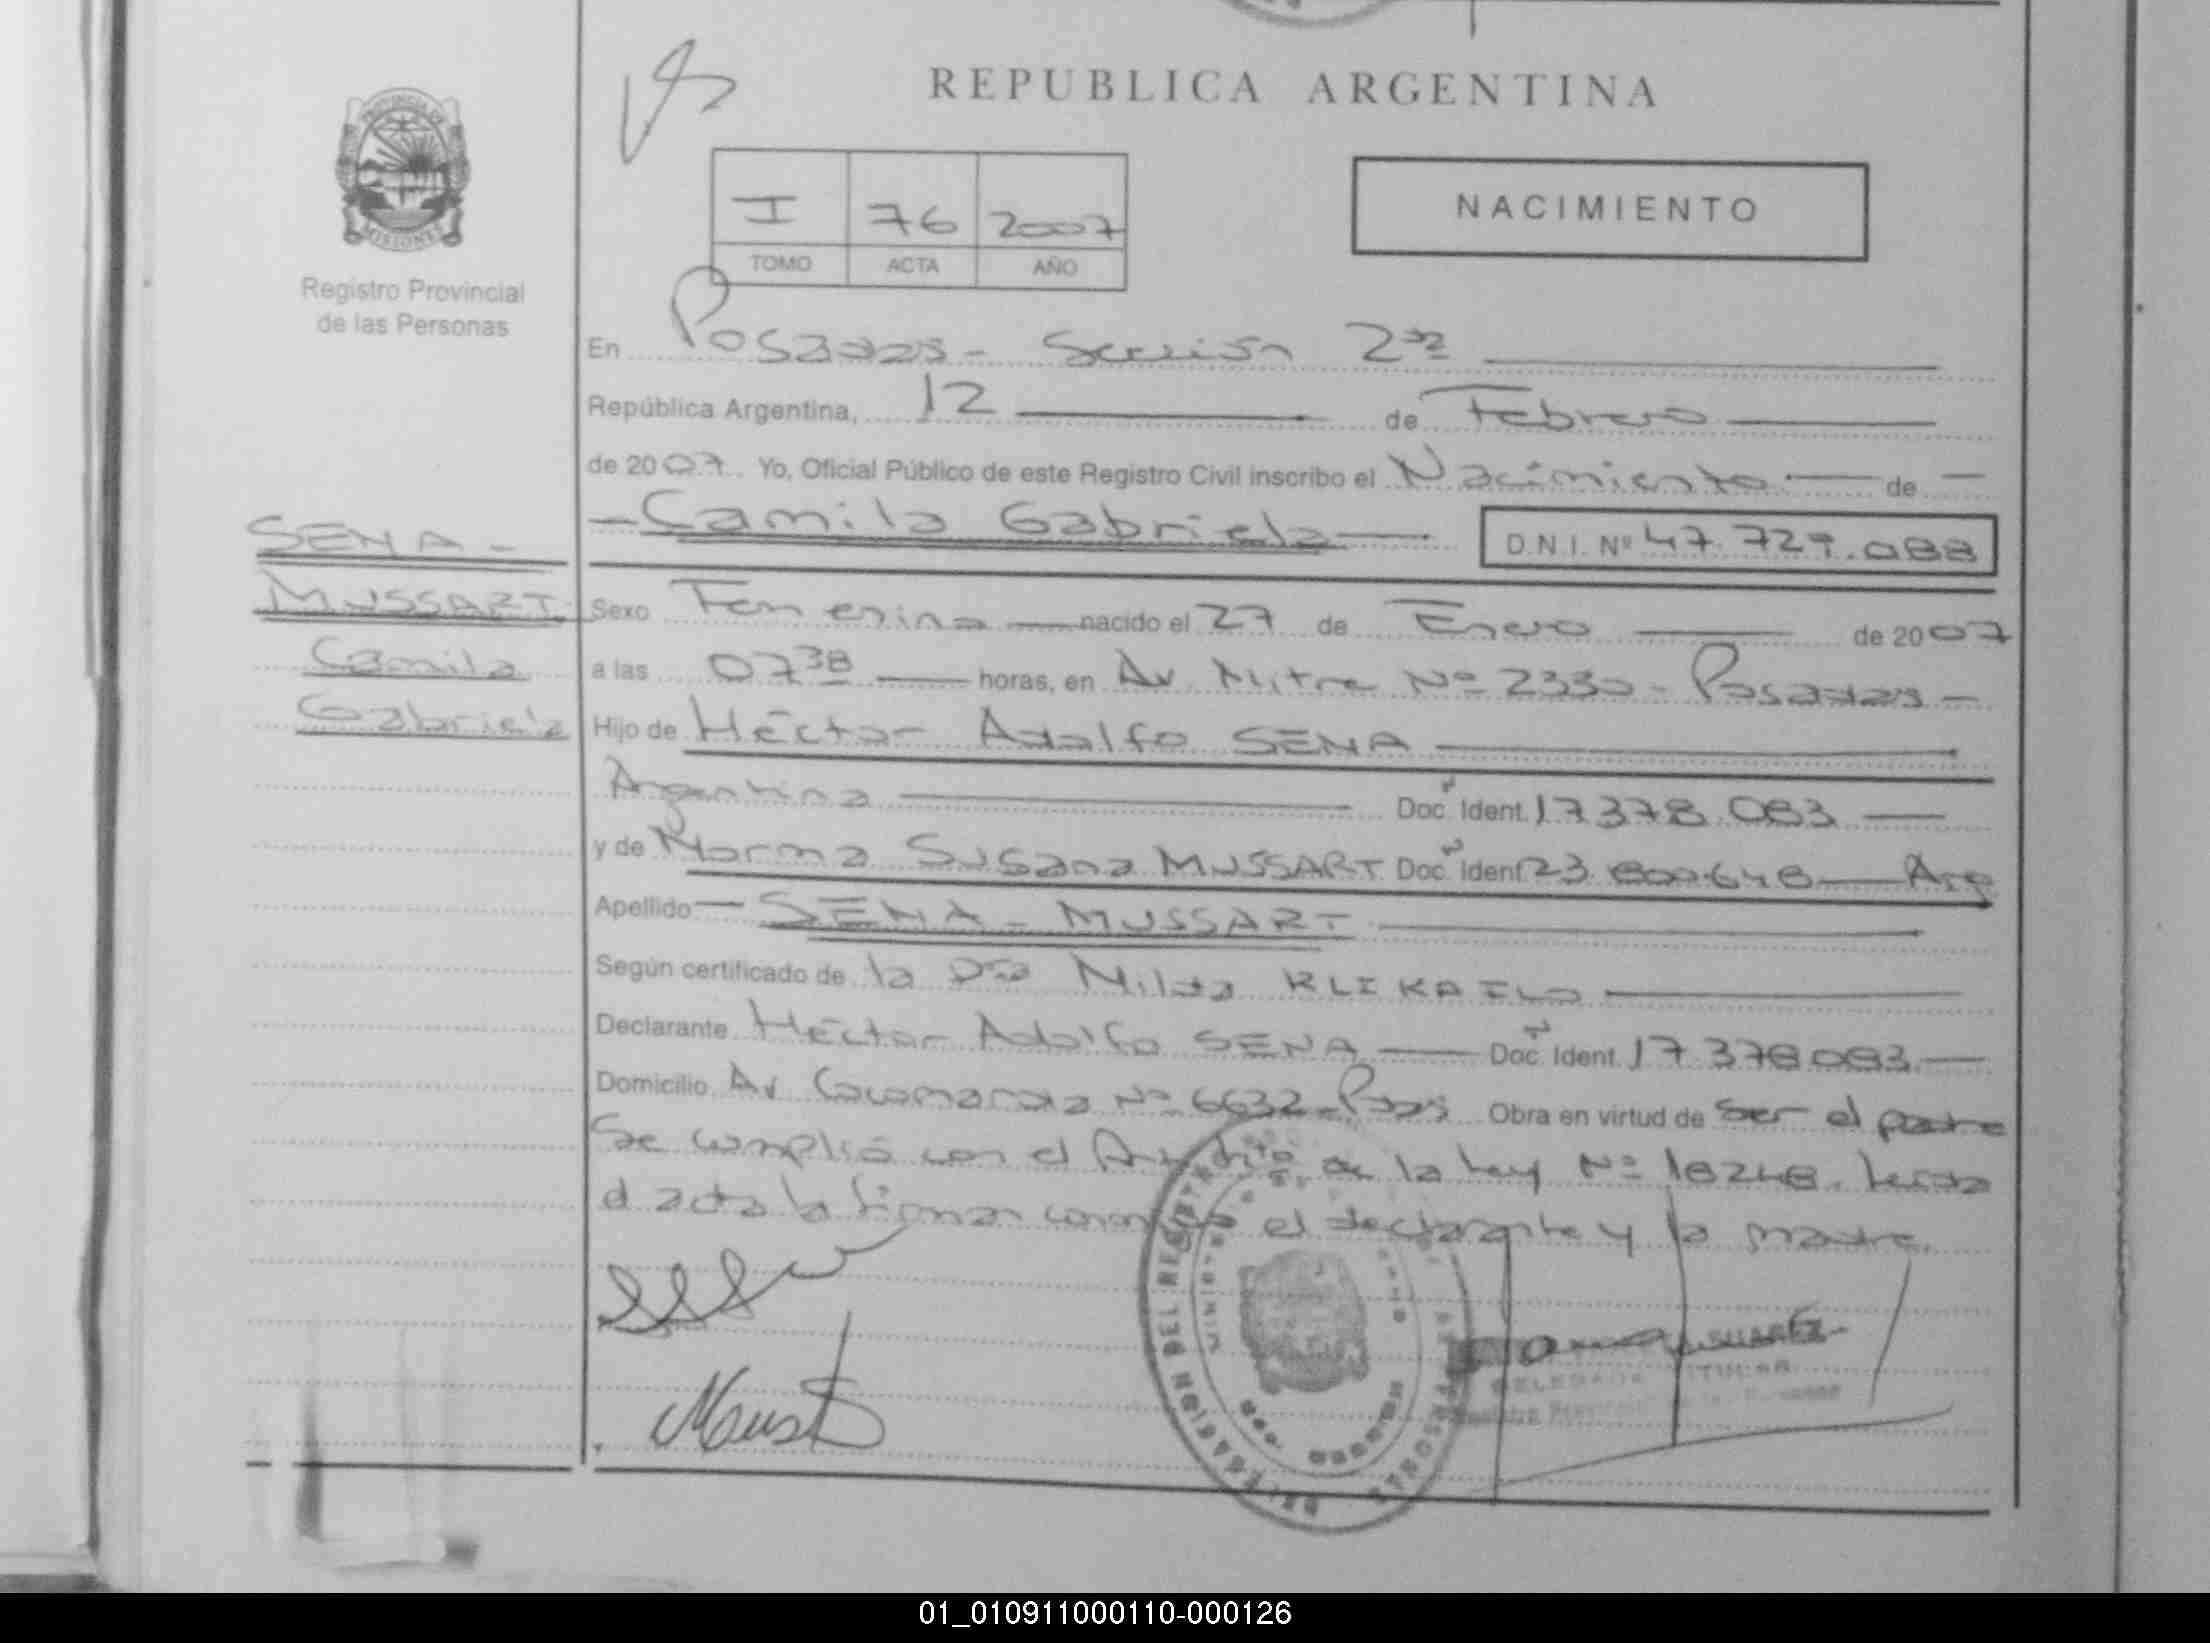 REPUBLICA ARGENTINA
PROVINCIA DE
MISIONES
Registro Provincial
de las Personas
I 76 2007
TOMO ACTA AÑO
NACIMIENTO
En Posadas - Sección 2da
República Argentina, 12 de Febrero
de 2007 Yo, Oficial Público de este Registro Civil inscribo el Nacimiento de
Camila Gabriela D.N.I. Nº 47.727.088
SENA -
MUSSART
Camila
Gabriela
Sexo Femenino nacido el 27 de Enero de 2007
a las 07 38 horas, en Av. Mitre Nº 2330 - Posadas -
Hijo de Héctor Adolfo SENA
Argentina Doc. Ident. 17.378.083
y de Norma Susana MUSSART Doc. Ident. 23.800.648 Arg
Apellido SENA - MUSSART
Según certificado de la Dra Nilda
Declarante Héctor Adolfo SENA Doc. Ident. 17.378.083
Domicilio Av. Nº 6632 - Pdas Obra en virtud de ser el padre
Se cumplió con el de la Ley Nº 18248. Leída
el acta la firman conmigo el declarante y la madre.
DELEGACION DEL REGISTRO
DELEGADA TITULAR
01_010911000110-000126